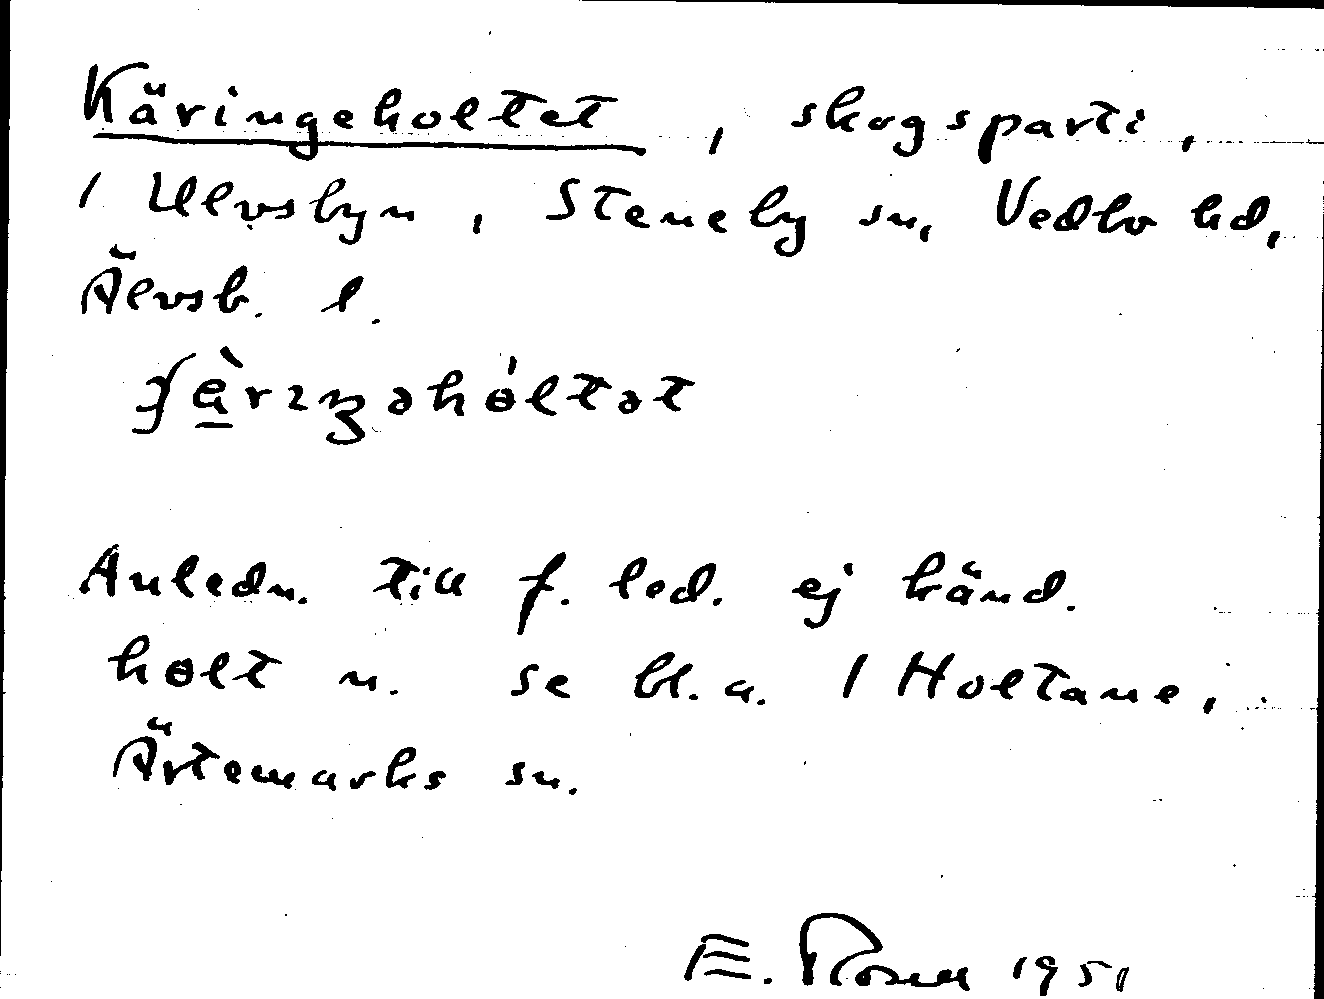 Käringeholtet, skogsparti,
/ Ulvsbyn, Steneby sn, Vedbo hd,
Älvsb. l.
Anledn. till f. led. ej känd.
hɵlt n. se bl. a. / Holtane,
Ärtemarks sn.
E. Rosell 1951